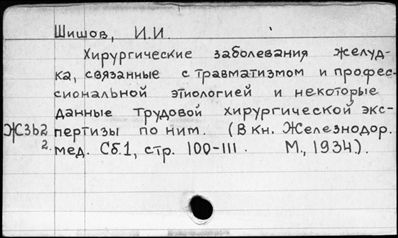 Шишов, И.И.
Хирургические заболевания желуд-
ка, связанные с травматизмом и профес-
сиональной этиологией и некоторые
данные трудовой хирургической экс-
Ж3б2 пертизы по ним. (В кн. Железнодор.
2. мед. Сб.1, стр. 100-111. М., 1934).